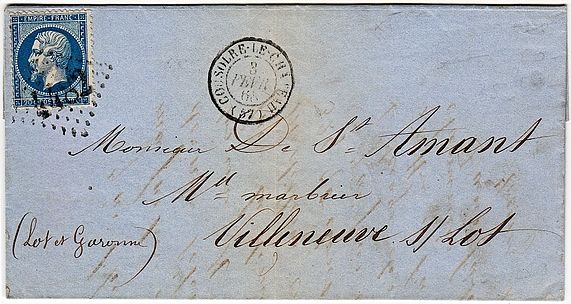 EMPIRE FRANC
COUSOLRE-LE-CHATEAU
2
FEVR
(57)
Monsieur De St Amant
Md marbrier
Villeneuve s/ Lot
(Lot et Garonne)